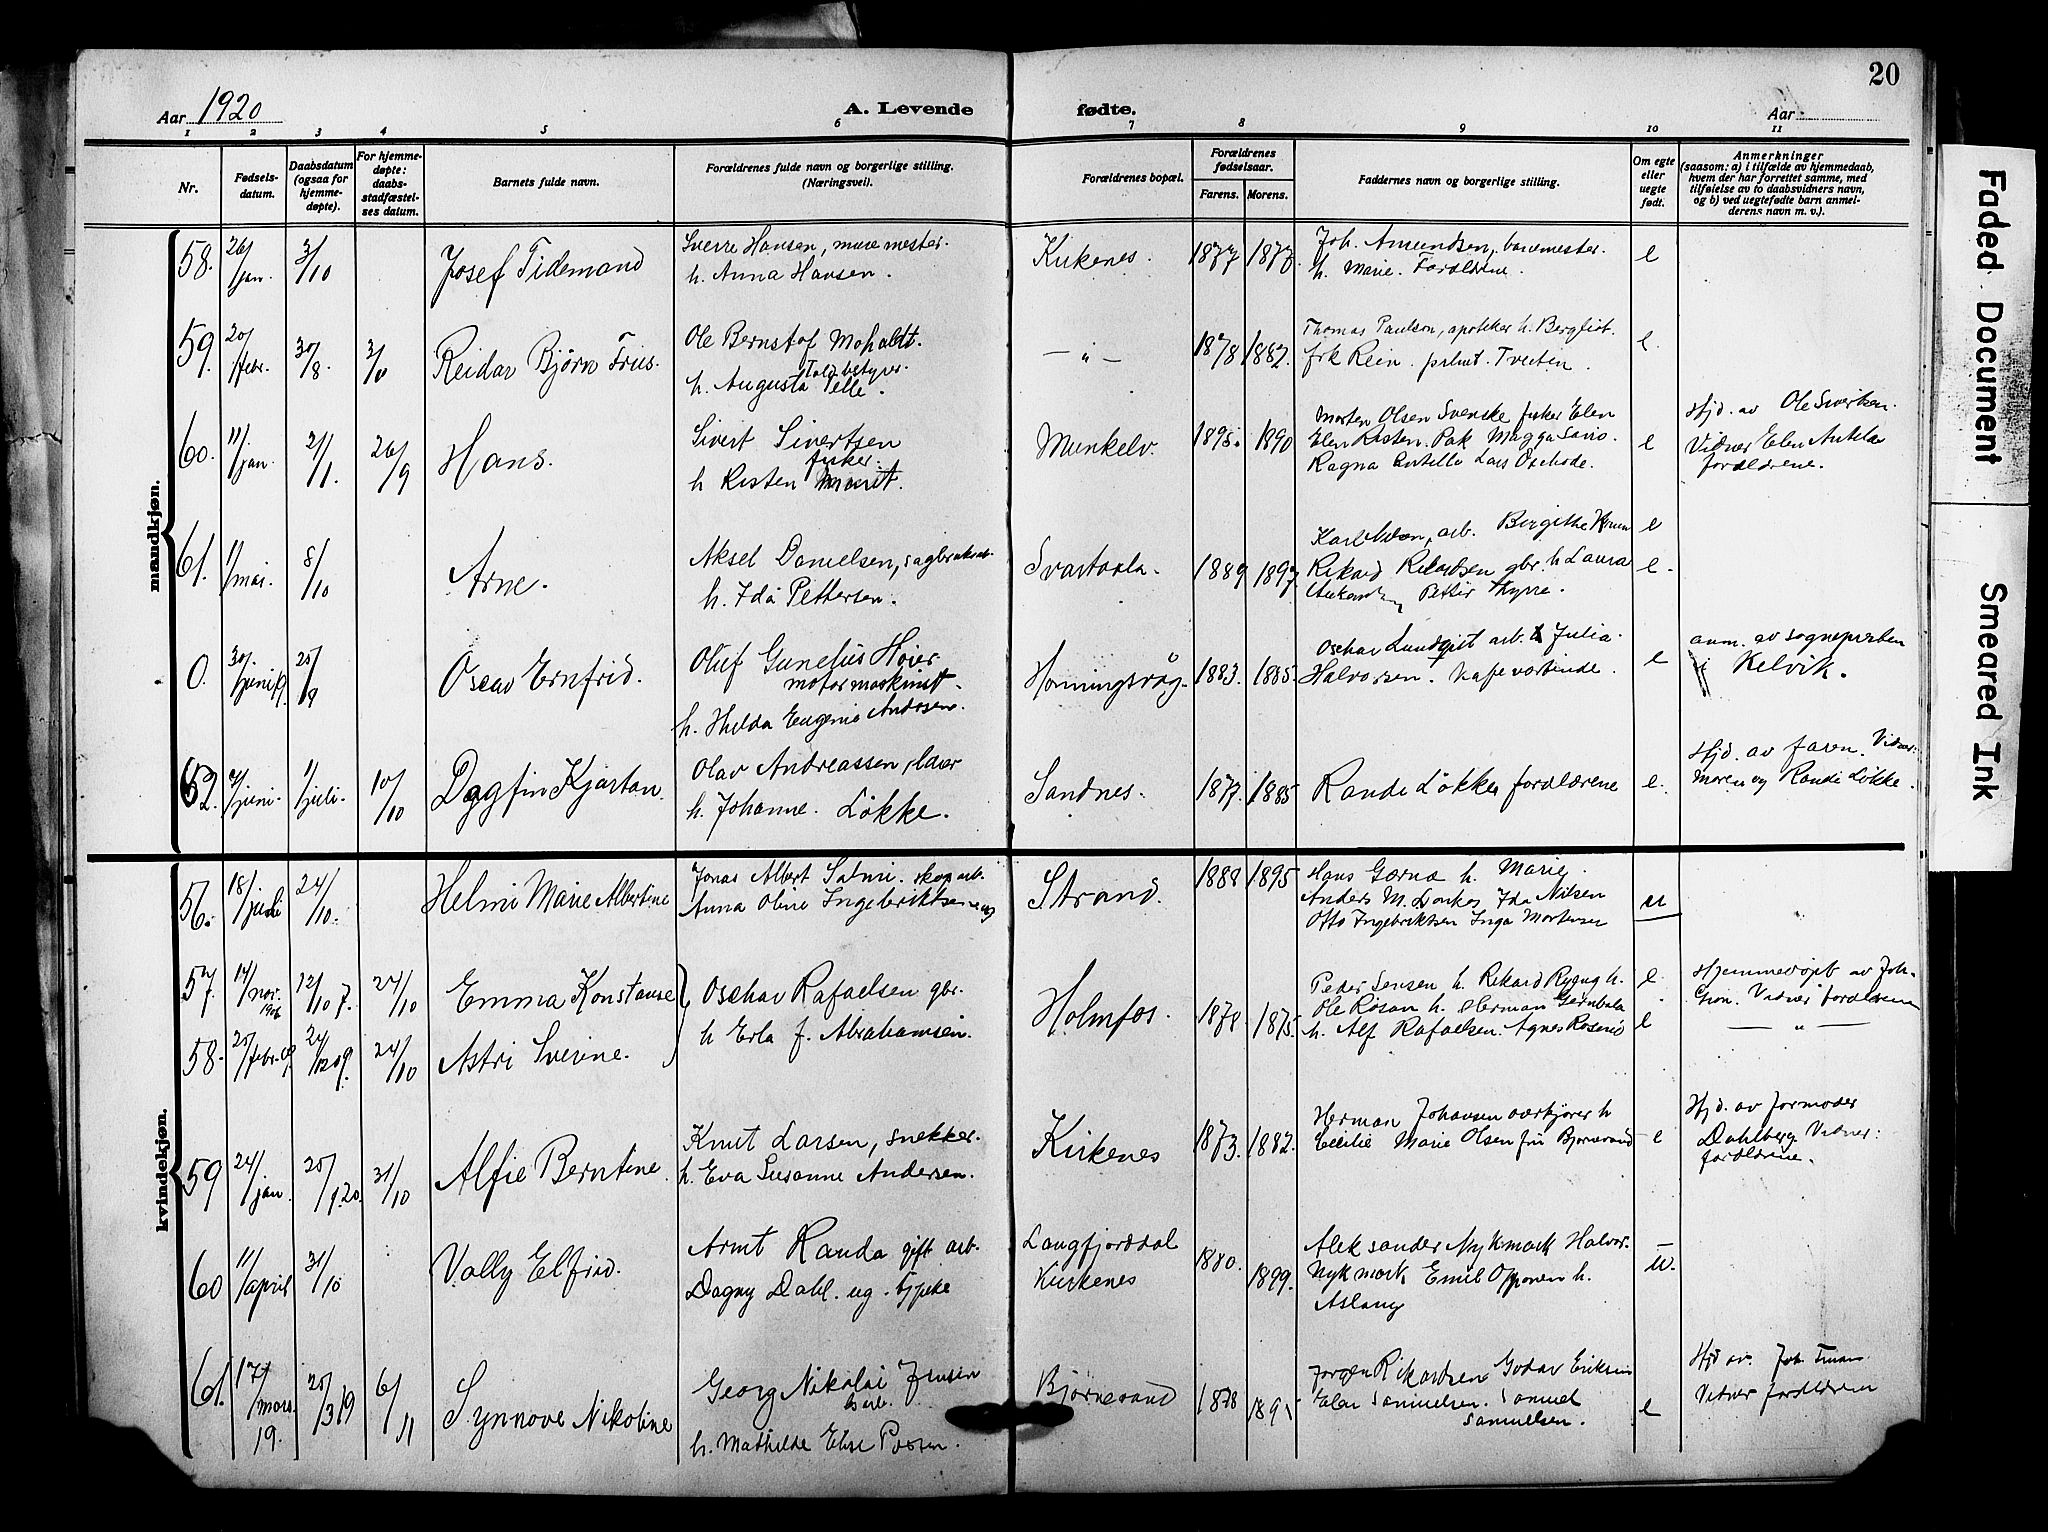 20
Aar 1920
A. Levende fødte.
Aar
1 2 3 4 5 6 7 8 9 10 11
Nr.
Fødsels-
datum.
Daabsdatum
(ogsaa for
hjemme-
døpte).
For hjemme-
døpte:
daabs-
stadfæstel-
ses datum.
Barnets fulde navn.
Forældrenes fulde navn og borgerlige stilling.
(Næringsvei).
Forældrenes bopæl.
Forældrenes
fødselsaar.
Farens. Morens.
Faddernes navn og borgerlige stilling.
Om egte
eller
uegte
født.
Anmerkninger
(saasom: a) i tilfælde av hjemmedaab,
hvem der har forrettet samme, med
tilføielse av to daabsvidners navn,
og b) ved uegtefødte barn anmel-
derens navn m. v.).
mandkjøn.
58. 26/jan. 3/10 Josef Tidemand
Sverre Hansen, murmester.
h. Anna Hansen.
Kirkenes. 1877 1873.
Joh. Amundsen, banemester.
h. Marie. Forældrene.
e
59. 20/febr. 30/8. Reidar Bjørn Friis.
Ole Bernstof Moholdt.
Toldbetyrer.
h. Augusta Pelle.
— " — 1878 1882.
Thomas Paulson, apotheker h. Bergliot.
frk Rein. Tveten.
e.
60. 11/jan. 2/1. 26/9 Hans.
Sivert Sivertsen
fisker.
h Risten Marit.
Munkelv. 1895. 1890
Morten Olsen Svenske fisker Elen
Elen Risten. Pak Magga Savio.
Ragna Lars
e
Hjd. av Ole Sivertsen.
Vidner Elen
forældrene.
61. 1/mai. 8/10 Arne.
Aksel Danielsen, sagbruksarb.
h. Ida Pettersen.
Svartaala. 1889 1897
Karl Nilsen, arb. Birgithe
Rikard Rikardsen gbr. h Laura
Petter
e
e.
0. 30/juni 19. 25/8 Oscar Ernfrid.
Oluf Gunelius Høier
motormaskinist.
h. Hilda Eugenie Andersen.
Honningsvåg. 1883. 1885.
Oschar Lundqist arb. Julia
Halvorsen. kafevertinde.
e
anm. av sogneprsten
i Kelvik.
62. /juni. 1/juli. 10/10 Dagfin Kjartan.
Olav Andreassen, lærer
h. Johanne. Løkke.
Sandnes. 1877. 1885
Randi Løkke, forældrene
e.
Hjd. av faren. Vidner:
moren og Randi Løkke.
kvindekjøn.
56. 18/juli 24/10. Helmi Marie Albertine
Jonas Albert Salmi. skogarb.
Anna Oline Ingebriktsen ug
Strand. 1888 1895
Hans Gærnæ h. Marie.
Anders M. Ida Nilsen
Otto Ingebriktsen Inga Mortensen
u
57. 14/nov. 1906 12/10 7. 24/10 Emma Konstanse
Oschar Rafaelsen gbr.
h Erla f. Abrahamsen.
Holmfos. 1878 1875.
Peder Jensen h. Rikard h.
Ole Rosan h. Herman
h. Alf Rafaelsen. Agnes
e
e
Hjemmedøpt av Joh.
Vidner forældrene
— " —
58. 25/febr. 09. 24/12 09. 24/10 Astri Sverine.
59 24/jan. 25/9.20. 31/10 Alfie Berntine.
Knut Larsen, snekker.
h. Eva Susanne Andersen.
Kirkenes 1873. 1882.
Herman Johansen h
Cecilie Marie Olsen fru Bjørnevand
e
Hjd. av jormoder
Dahlberg. Vidner:
forældrene.
60 11/april 31/10 Vally Elfrid.
Arnt Randa gift arb.
Dagny Dahl. ug. tjpike
Langfjorddal
Kirkenes
1880. 1899.
Aleksander Nykmark Halvor
Nykmark Emil Opponen h.
Aslaug
u.
61. 17/mars. 19. 25/3 19 6/11 Synnøve Nikoline
Georg Nikolai Jensen
h. Mathilde Elise
Bjørnevand 1878 1895
Jørgen Rikardsen Godav Eriksen
Elen Samuelsen. Samuel
Samuelsen.
e
Hjd av. Joh.
Vidner forældrene
Faded Document
Smeared Ink